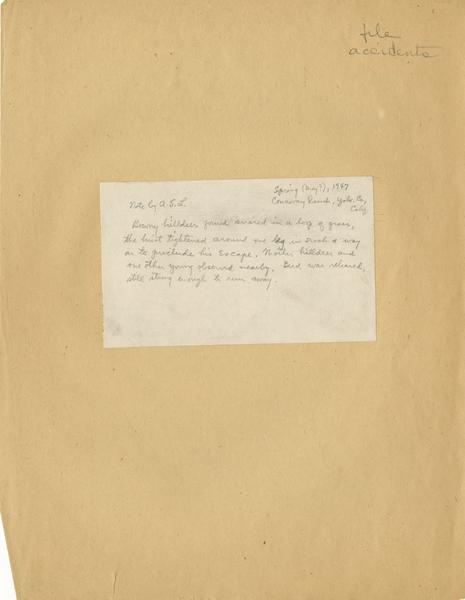 file
accidents
Spring (May?), 1947
Note by A.S.L.
Conaway Ranch, Yolo Co,
Calif
Downy killdeer found snared in a loop of grass,
the knot tightened around one leg in such a way
as to preclude his escape. Mother killdeer and
one other young observed nearby. Bird was released,
still strong enough to run away.